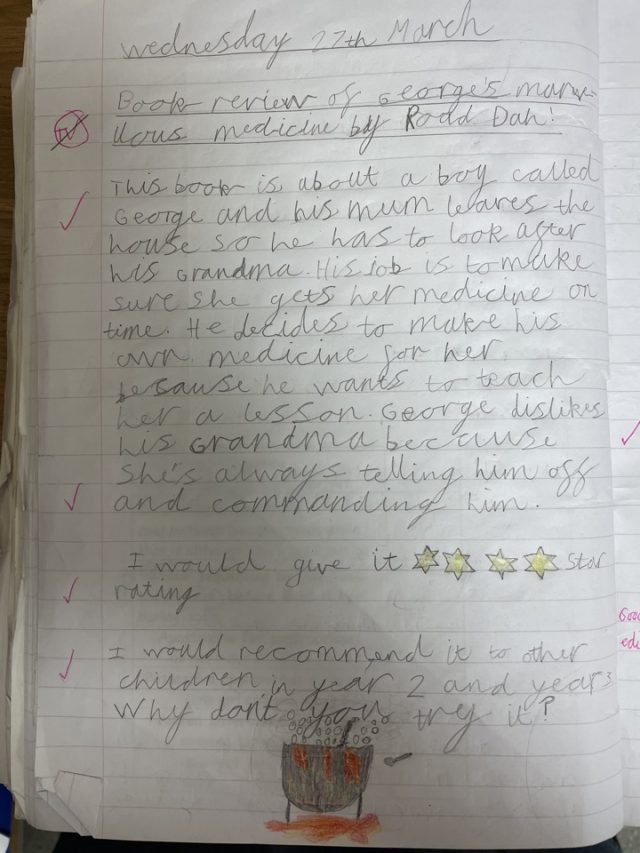 Wednesday 27th March
Book review of George's marve-
llous medicine by Roald Dahl
This book is about a boy called
George and his mum leaves the
house so he has to look after
his Grandma. His job is to make
sure she gets her medicine on
time. He decides to make his
own medicine for her
because he wants to teach
her a lesson. George dislikes
his Grandma because
She's always telling him off
and commanding him.
I would give it star
rating
I would recommend it to other
children in year 2 and year 3
Why don't you try it?
Good